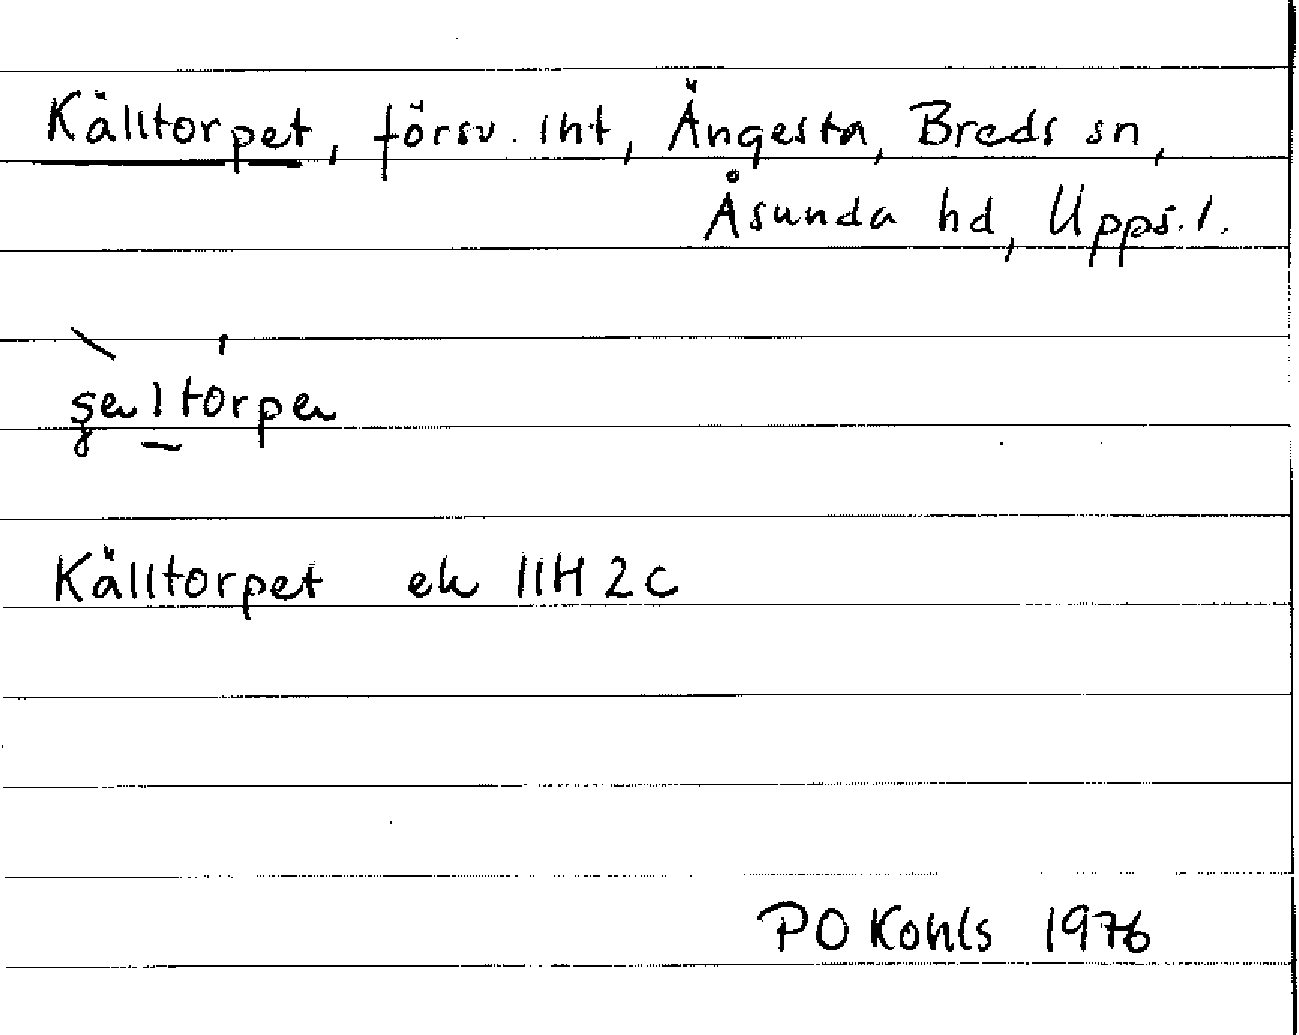 Källtorpet, försv. lht, Ängesta, Breds sn,
Åsunda hd, Upps. l.
Källtorpet ek 11H 2c
PO Kohls 1976